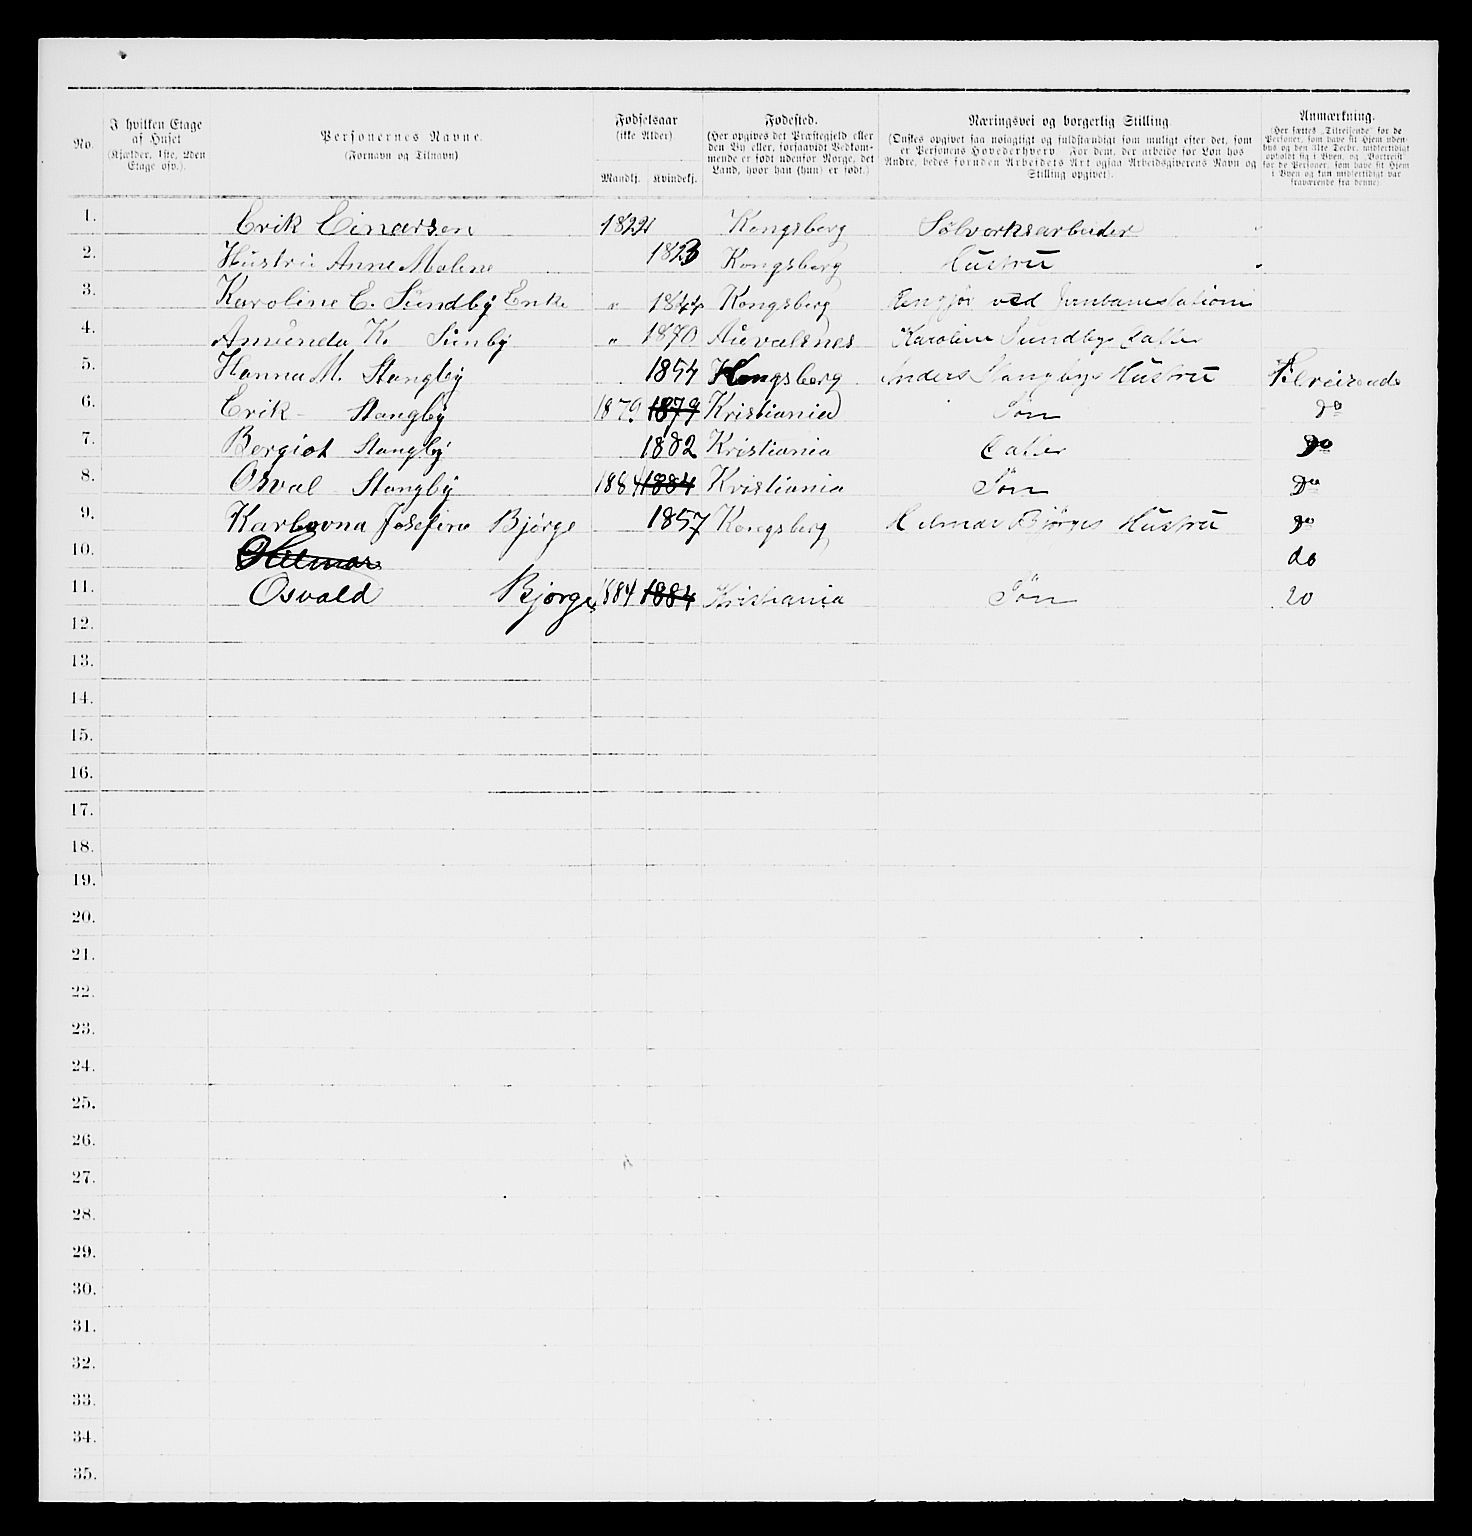 No.
I hvilken Etage af Huset
(Kjælder, 1ste, 2den Etage osv.).
Personernes Navne.
(Fornavn og Tilnavn)
Fødselsaar
(ikke Alder)
Mandkj. Kvindekj.
Fødested.
(Her opgives det Præstegjeld eller den By eller, forsaavidt Vedkommende er født udenfor Norge, det Land, hvor han (hun) er født.)
Næringsvei og borgerlig Stilling.
(Ønskes opgivet saa nøiagtigt og fuldstændigt som muligt efter det, som er Personens Hovederhverv For dem, der arbeide for Løn hos Andre, bedes foruden Arbeidets Art ogsaa Arbeidsgiverens Navn og Stilling opgivet).
Anmærkning.
(Her sættes „Tilreisende" for de Personer, som have sit Hjem udenbys og den 31te Decbr. midlertidigt opholdt sig i Byen, og „Bortreist" for de Personer, som have sit Hjem i Byen og kun midlertidigt var fraværende fra denne)
1. Erik Einarsen 1822 Kongsberg Sølverksarbeider "
2. Hustru Anne Malene 1823 Kongsberg Hustru "
3. Karoline E. Sundby Enke " 1844 Kongsberg Rengjør ved Jernbanestation
4. Amunda K. Sunby " 1870 Karoline Sundbys Datter
5. Hanna M. Stangby 1854 Kongsberg Anders Stangbys Hustru Tilreisende
6. Erik - Stangby 1879 1879 Kristiania Søn do
7. Bergiot Stangby 1882 Kristiania Datter do
8. Osval Stangby 1884 1884 Kristiania Søn do
9. Josefine Bjørge 1857 Kongsberg Hilmar Bjørges Hustru do
10. Hilmar do
11. Osvald Bjørge 1884 1884 Kristiania Søn do
12.
13.
14.
15.
16.
17.
18.
19.
20.
21.
22.
23.
24.
25.
26.
27.
28.
29.
30.
31.
32.
33.
34.
35.